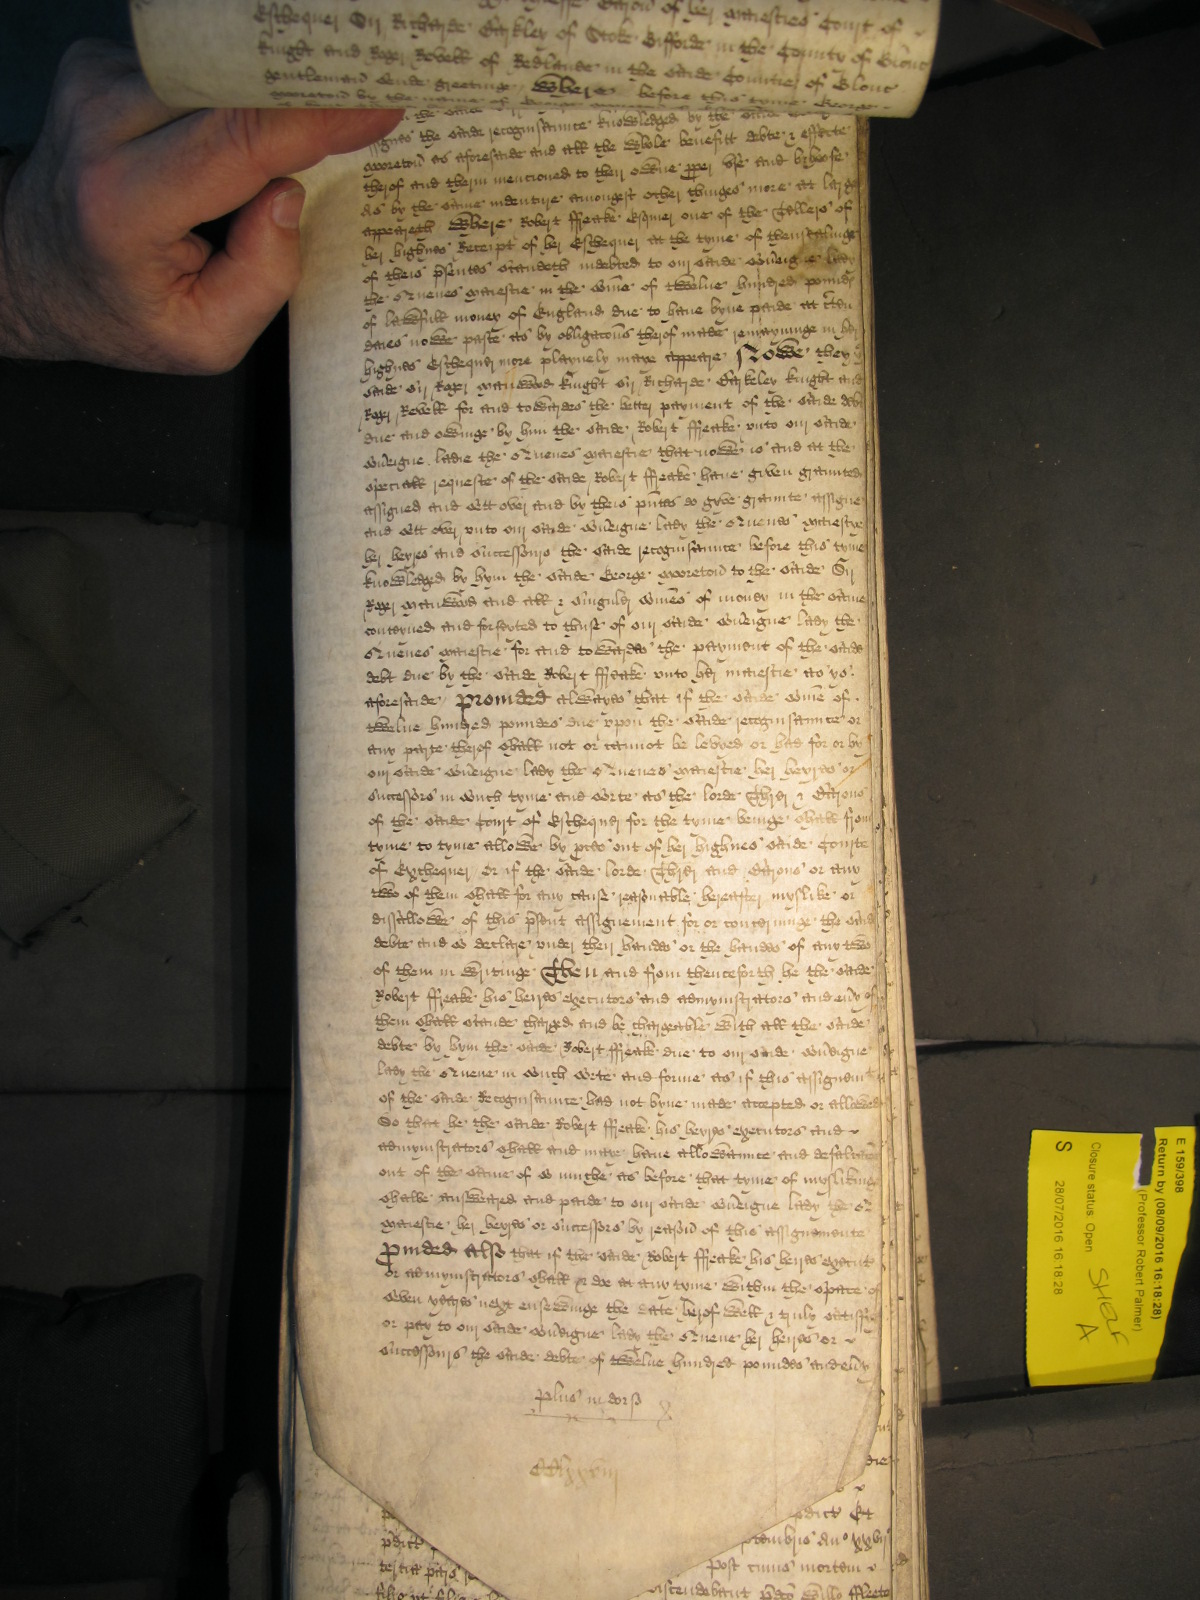 Eschequer Sir Richarde Barkley of Stoke Gifforde in the County of Glouc
knight and Roger Revell of Redlande in the saide Countie of Glouc
gentleman sende greeting Where before this tyme George
the saide recognisaunce knowledged by the saide
moreton as aforesaide and all the whole benefitt debte & effecte
therof and therin mentioned to their owne pper use and behoofe
As by the same indenture amongest other thinges more at large
appeareth Where Robert ffreake Esquier one of the Tellers of
her highnes Receipt of her Eschequer at the tyme of thensealinge
of theis psentes standeth indebted to our saide souveigne Lady
the Quenes maiestie in the some of twelve hundred pounds
of lawfull money of England due to have byne paide at
daies nowe paste as by obligacons therof made remayninge in her
highnes Eschequer more playnely maye appeare Nowe they
saide Sir Roger manwood knight Sir Richarde Barkeley knight and
Roger Revell for and towardes the better payment of the saide debt
due and owinge by him the saide Robert ffreake unto our saide
souveigne ladie the Quenes maiestie that nowe is and at the
speciall requeste of the saide Robert ffreake have given graunted
assigned and sett over and by theis pntes do gyve graunte assigne
and sett over unto our saide souveigne lady the Quenes maiestye
her heyres and successors the saide recognisaunce before this tyme
knowledged by hym the saide George moreton to the saide Sir
Roger manwood and all & singuler somes of money in the same
conteyned and forfeyted to thuse of our saide souveigne lady the
Quenes maiestie for and towardes the payment of the saide
debt due by the saide Robert ffreake unto her maiestie as ys
aforesaide Provided alwayes that if the saide some of
twelve hundred poundes due upon the saide recognisaunce or
any parte therof shall not or cannot be levyed or had for or by
our saide souveigne lady the Quenes maiestie her heyres or
successors in such tyme and sorte as the lorde Threr & Barons
of the saide Court of Eschequer for the tyme beinge shall from
tyme to tyme allowe by pces out of her highnes saide Courte
of Exchequer Or if the saide lorde Threr and Barons or any
two of them shall for any cause reasonable hereafter myslike or
dissallowe of this psent assignement for or concerninge the said
debte and so declare under their handes or the handes of any two
of them in writinge Then and from thenceforth he the saide
Robert ffreake his heyres executors and admynistrators and evy of
them shall stande charged and be chargeable with all the saide
debte by hym the saide Robert ffreake due to our saide souveigne
lady the Quene in such sorte and forme as if this assignmt
of the saide Recognisaunce had not byne made accepted or allowed
So that he the saide Robert ffreake his heyres executors and
admynistrators shall and maye have allowaunce and defalcacon
out of the same of so muche as before that tyme of myslikinge
shalbe answeared and paide to our saide souveigne lady the Q
maiestie her heyres or successors by reason of this assignmente
Provided also that if the saide Robert ffreake his heyres execut
or admynistrators shall & doe at any tyme within the space of
seven yeares next ensewinge the date herof well & truly satisfie
or pay to our saide souveigne lady the Quene her heires or
successors the saide debte of twelve hundred poundes and evy
plus in dorso
CClxxviij
pdict
Post cuius mortem
discendebant
E 159/398
Return by (08/09/2016 16:18:28)
(Professor Robert Palmer)
Closure status: Open
S
28/07/2016 16:18:28
Shelf
A